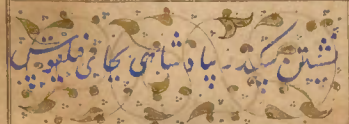 نشستن سکندر پادشاهی بجای فیلقوس